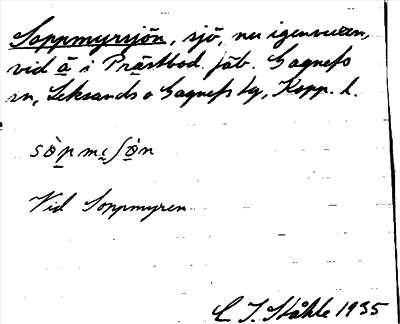 Soppmyrsjön, sjö, nu igenvuxen,
vid å i Prästbod. fäb. Gagnefs
sn, Leksands o Gagnefs tg, Kopp. l.
Vid Soppmyren
C I. Ståhle 1935